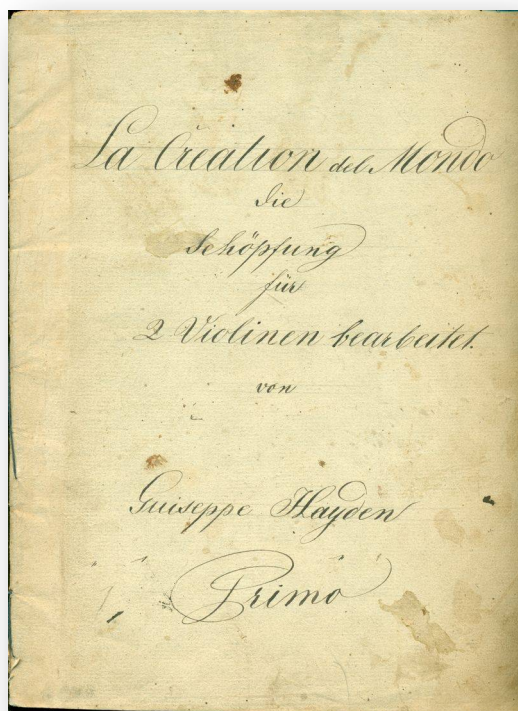 La Creation del Mondo
die
Schöpfung
für
2 Violinen bearbeitet.
von
Guiseppe Hayden
Primo